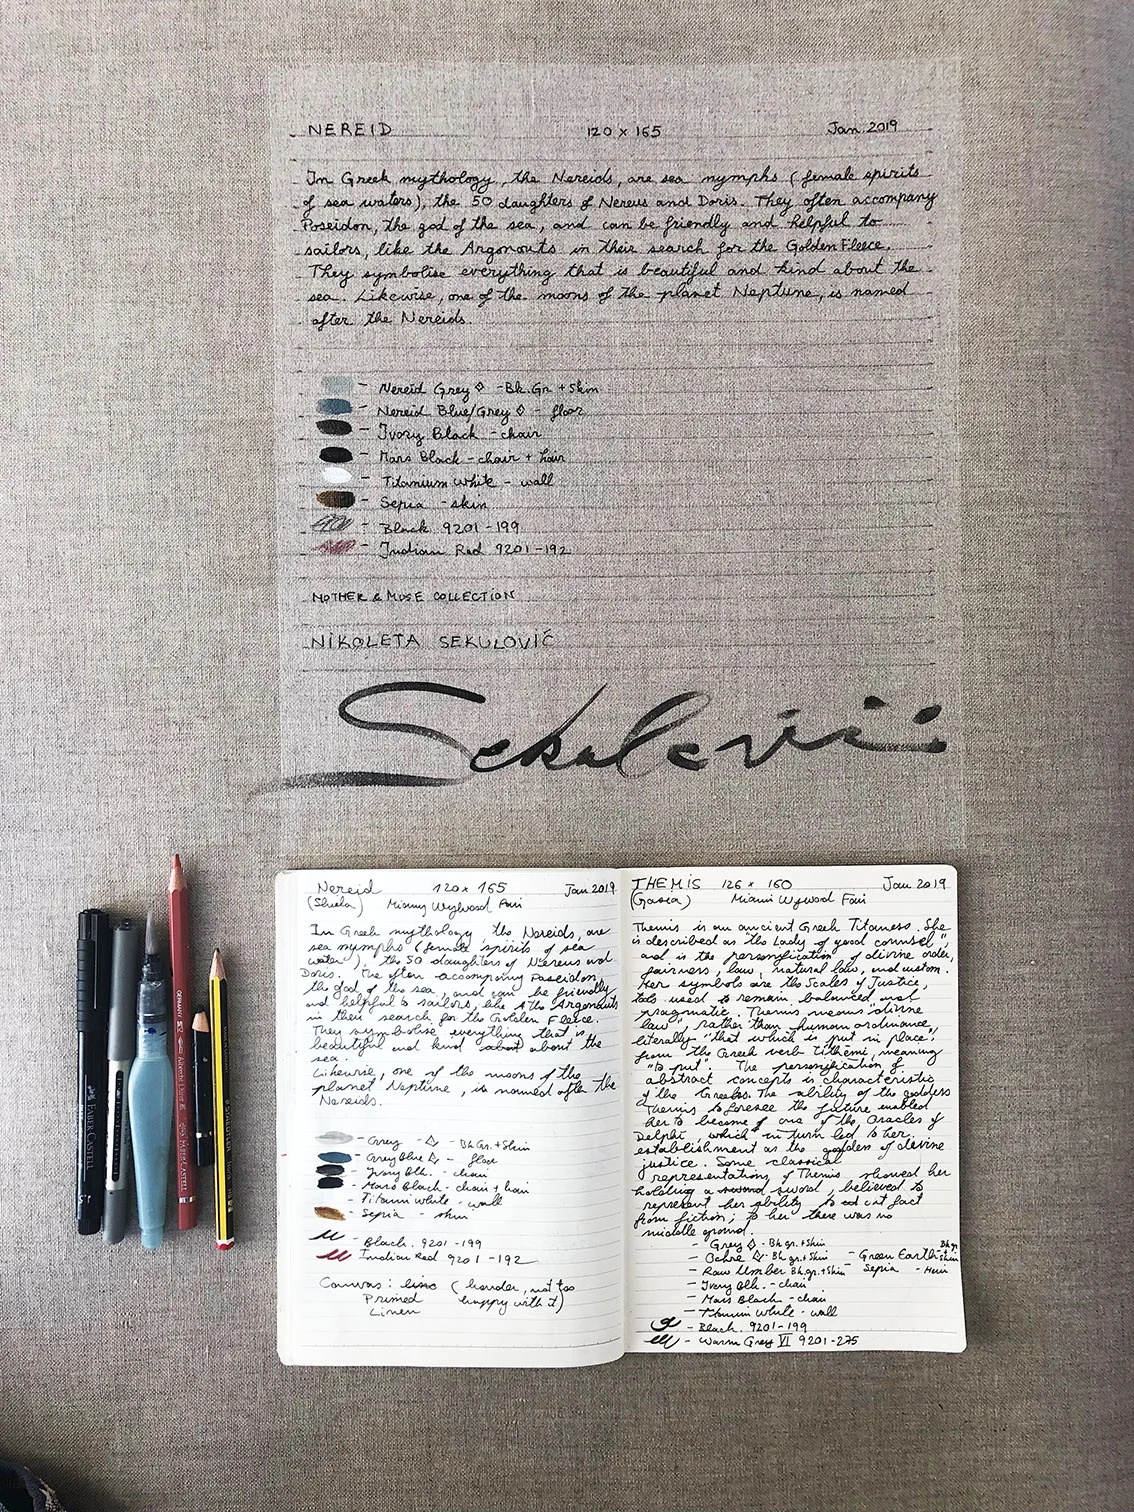 NEREID 120 x 165 Jan. 2019
In Greek mythology, the Nereids, are sea nymphs (female spirits
of sea waters), the 50 daughters of Nereus and Doris. They often accompany
Poseidon, the god of the sea, and can be friendly and helpful to
sailors, like the Argonauts in their search for the Golden Fleece.
They symbolise everything that is beautiful and kind about the
sea. Likewise, one of the moons of the planet Neptune, is named
after the Nereids.
– Nereid Grey ◊ - Bk.Gr + Skin
– Nereid Blue/Grey ◊ - floor
– Ivory Black - chair
– Mars Black - chair + hair
– Titanium White - wall
– Sepia - skin
– Black 9201-199
– Indian Red 9201-192
MOTHER & MUSE COLLECTION
NIKOLETA SEKULOVIĆ
Sekulović
Nereid 120 x 165 Jan 2019
(Sheila) Wynwood Fair
In Greek mythology, the Nereids, are
sea nymphs (female spirits of sea
water), the 50 daughters of Nereus and
Doris. The often accompany Poseidon,
the god of the sea, and can be friendly
and helpful to sailors, like the Argonauts
in their search for the Golden Fleece.
They symbolise everything that is
beautiful and kind about the
sea.
Likewise, one of the moons of the
planet Neptune, is named after the
Nereids.
– Grey - ◊ - Bk Gr. + Skin
– Grey Blue ◊ - floor
– Ivory Blk. - chair
– Mars Black - chair + hair
– Titanium White - wall
– Sepia - skin
– Black. 9201-199
– Indian Red 9201-192
Canvas: (harder, not too
Primed happy with it)
Linen
THEMIS 126 x 160 Jan 2019
Miami Wynwood Fair
Themis is an ancient Greek Titaness. She
is described as the Lady of good counsel",
and is the personification of divine order,
fairness, law, natural law, and custom.
Her symbols are the Scales of Justice,
used to remain balanced and
pragmatic. Themis means "divine
law" rather than human ordinance,
literally "that which is put in place",
from the Greek verb Tithemi, meaning
"to put". The personification of
abstract concepts is characteristic
of the Greeks. The ability of the goddess
Themis to foresee the future enabled
her to become of one of the Oracles of
Delphi, which in turn led to her
establishment as the goddess of divine
justice. Some classical
representations of Themis showed her
holding a sword, believed to
represent her ability to cut fact
from fiction; to her there was no
middle ground.
– Grey ◊ - Bk gr. + Skin
– Ochre ◊ - Bk gr. + Skin – Green Earth - Bk gr + Skin
– Raw Umber Bk gr. + Skin Sepia - Hair
– Ivory Blk. - chair
– Mars Black - chair
– Titanium White - wall
– Black 9201-199
– Warm Grey VI 9201-275
FABER-CASTELL
GERMANY
FABER-CASTELL